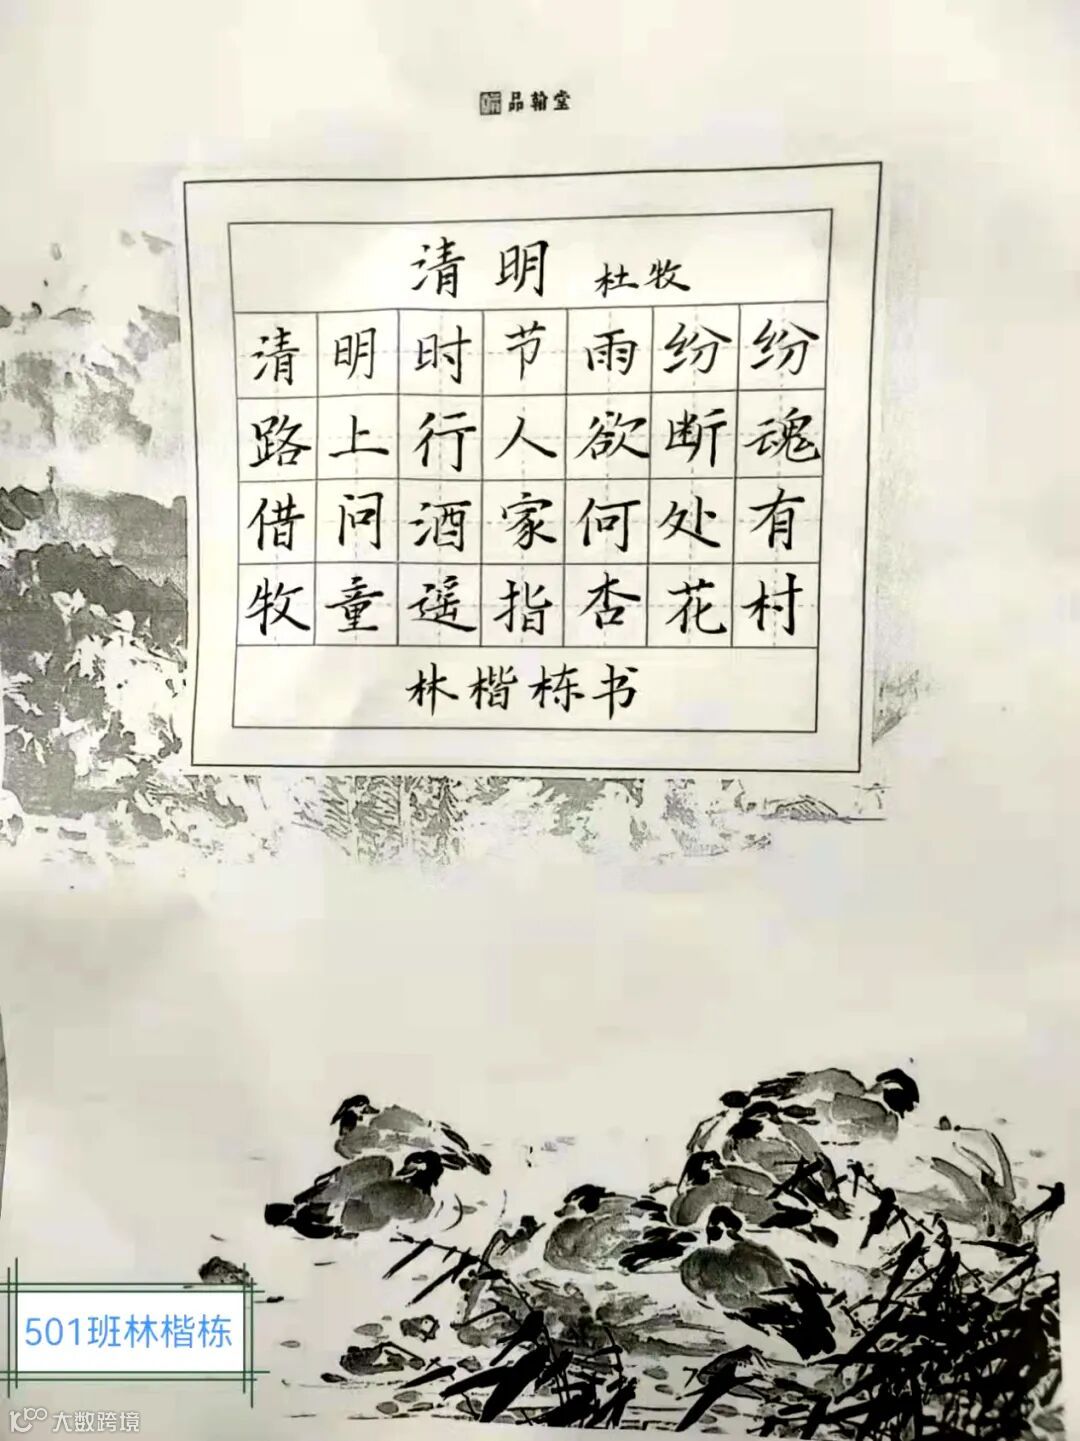 品翰堂
清明 杜牧
清明时节雨纷纷
路上行人欲断魂
借问酒家何处有
牧童遥指杏花村
林楷栋书
501班林楷栋
大数跨境